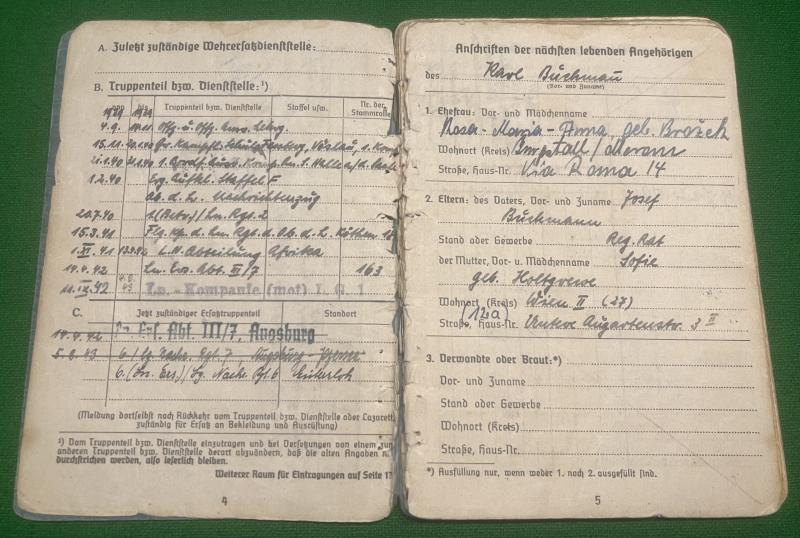 A. Zuletzt zuständige Wehrersatzdienststelle:
B. Truppenteil bzw. Dienststelle:¹)
von bis Truppenteil bzw. Dienststelle Staffel usw. Nr. der Stammrolle
1939 1939
4.9.
15.11.
1.2.40 Staffel F
Nachrichtenzug
20.7.40 Ln. Rgt. 2
15.3.41 Flg. Kp. d. Ln. Rgt. d. Ob. d. L. Köthen
1.XI.41 L.N. Abteilung Afrika
14.4.42 Ln. Ers. Abt. III/7 163
11.IX.42 Ln.-Kompanie (mot) L.G. 1
C. Jetzt zuständiger Ersatztruppenteil Standort
14.4.42 Ln. Ers. Abt. III/7, Augsburg
5.2.43 6./Lg. Nachr. Rgt. 7 Augsburg
6. (Ln. Ers.)/Lg. Nachr. Rgt 6
(Meldung dortselbst nach Rückkehr vom Truppenteil bzw. Dienststelle oder Lazarett
zuständig für Ersatz an Bekleidung und Ausrüstung)
¹) Vom Truppenteil bzw. Dienststelle einzutragen und bei Versetzungen von einem zum
anderen Truppenteil bzw. Dienststelle derart abzuändern, daß die alten Angaben
durchstrichen werden, also leserlich bleiben.
Weiterer Raum für Eintragungen auf Seite 17
4
Anschriften der nächsten lebenden Angehörigen
des Karl Buchmann
(Vor- und Zuname)
1. Ehefrau: Vor- und Mädchenname
Rosa-Maria-Anna geb. Brožek
Wohnort (Kreis) Burgstall/Meran
Straße, Haus-Nr. Via Roma 14
2. Eltern: des Vaters, Vor- und Zuname Josef
Buchmann
Stand oder Gewerbe Reg. Rat
der Mutter, Vor- u. Mädchenname Sofie
geb. Holtgrewe
Wohnort (Kreis) Wien II (27)
(12a)
Straße, Haus-Nr. Untere Augartenstr. 3 II
3. Verwandte oder Braut:*)
Vor- und Zuname
Stand oder Gewerbe
Wohnort (Kreis)
Straße, Haus-Nr.
*) Ausfüllung nur, wenn weder 1. noch 2. ausgefüllt sind.
5